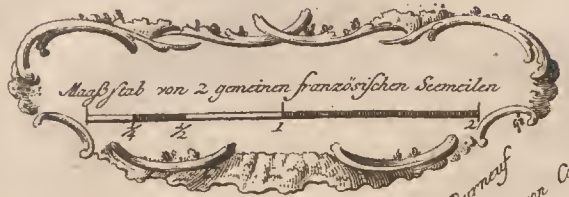 Maaßstab von 2 gemeinen französischen Seemeilen
¼ ½ 1 2
Burneuf